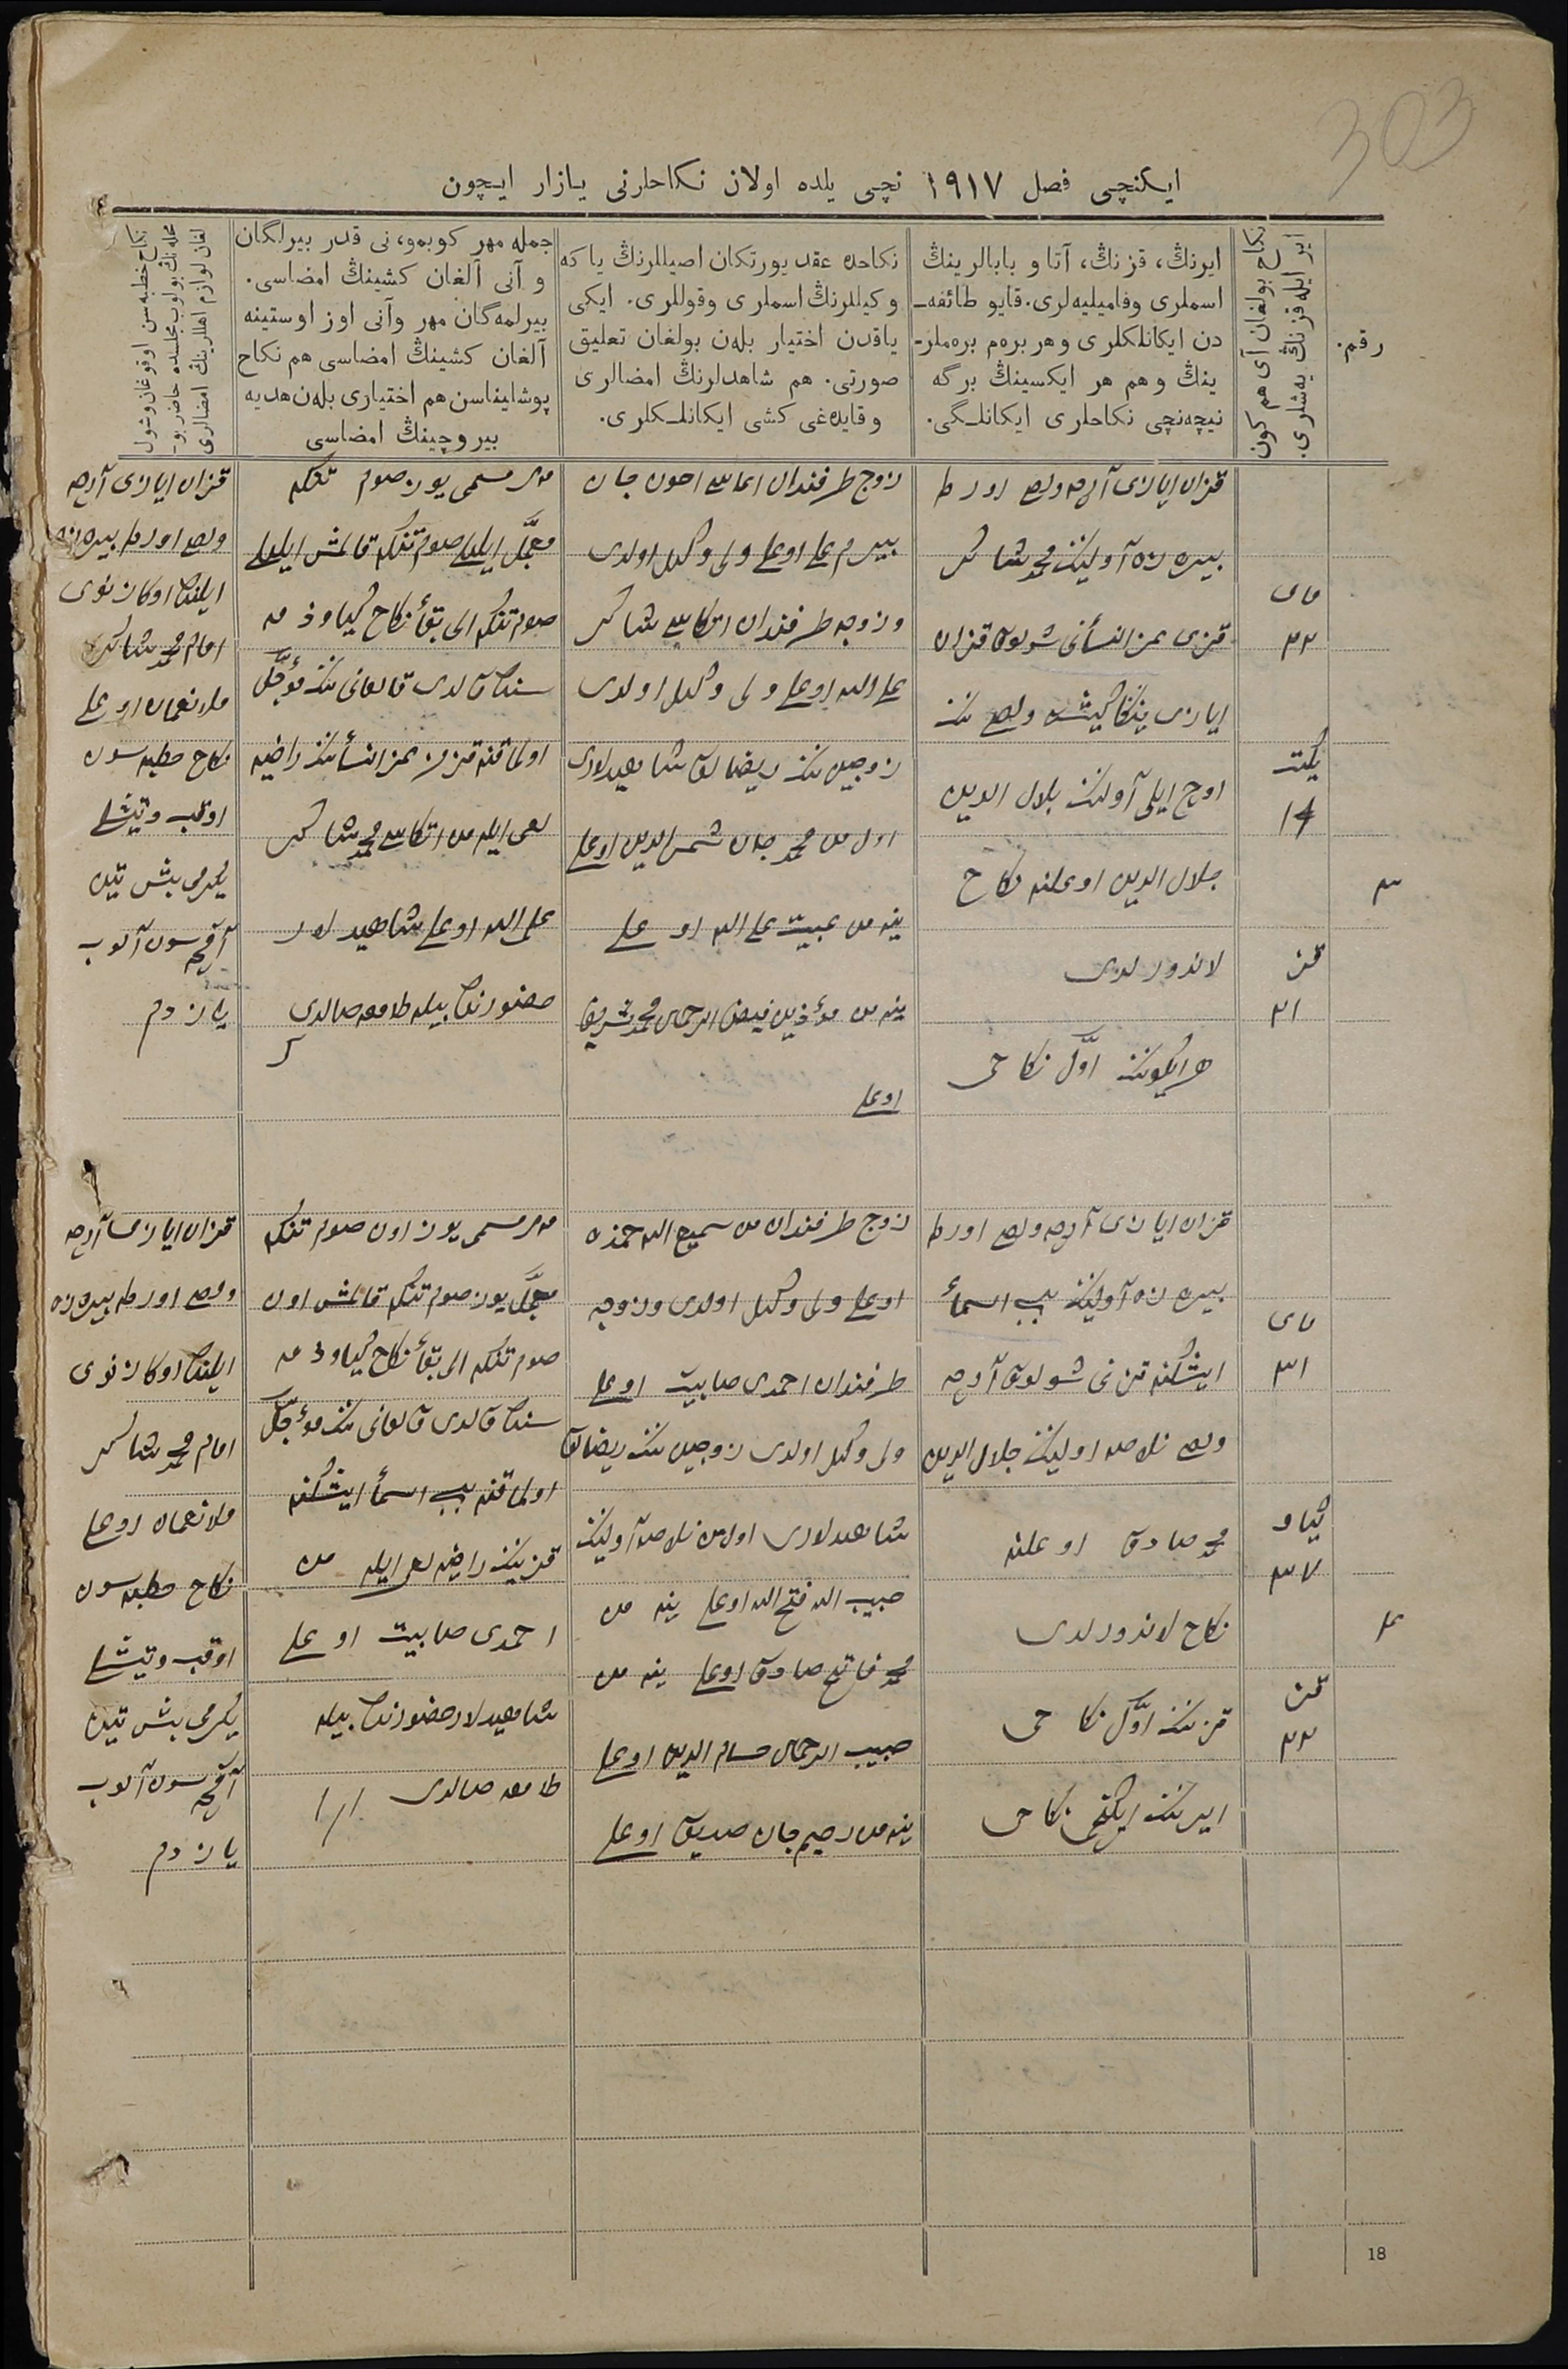 303
ایکنچی فصل ۱۹۱۷ نچی یلده اولان نکاحلرنی یازار ایچون
رقم.
نکاح بولغان آی هم کون
ایر ایله قزنڭ یه‌شلری.
ایرنڭ، قزنڭ، آتا و بابالرینڭ
اسملری وفامیلیه‌لری. قایو طائفه‌ـ
دن ایکانلکلری و هر بره‌م بره‌ملرـ
ینڭ و هم هر ایکسینڭ برگه
نیچه‌نچی نکاحلری ایکانلـگی.
نکاحده عقد یورتکان اصیللرنڭ یا که
وکیللرنڭ اسملری وقوللری. ایکی
یاقدن اختیار بله‌ن بولغان تعلیق
صورتی. هم شاهدلرنڭ امضالری
وقایده‌غی کشی ایکانلـکلری.
جمله مهر کوبمو، نی قدر بیرلگان
و آنی آلغان کشینڭ امضاسی.
بیرلمه‌گان مهر وآنی اوز اوستینه
آلغان کشینڭ امضاسی هم نکاح
پوشایناسن هم اختیاری بله‌ن هدیه
بیروچینڭ امضاسی
نکاح خطبه‌سن اوقوغان وشول
محله‌نڭ بولوب مجلسده حاضر بوـ
لغان لوازم اهللرینڭ امضالری
۳
مای
۲۲
یکت
۱۴
قز
۲۱
قزان ایازی آرچه ولصی اورطه
بیره‌زه آولینڭ محمد شاکر
قزی شولوق قزان
ایازی ولصی نڭ
اوچ ایلی آولینڭ بلال الدین
جلال الدین اوغلینه نکاح
لاندورلدی
هر ایکوینڭ اوّل نکاحی
زوج طرفندان جان
بیرم علی اوغلی ولی وکیل اولدی
و زوجه طرفندان اتکاسی شاکر
علی الله اوغلی ولی وکیل اولدی
زوجین نڭ ریضالق شاهیدلاری
اول من محمد جان شمس الدین اوغلی
ینه من علی الله اوغلی
ینه من مؤذین فیض الرحمان محمد شریف
اوغلی
مهر مسمی یوز صوم تنکه
معجّل ایللی صوم تنکه قالمش ایللی
صوم تنکه الی بقأ نکاح کیاو ذمه
سنده قالدی قالغانی نڭ مؤجّل
اولماقنه قز نڭ راضیه
لغی ایله من اتکاسی محمد شاکر
علی الله اوغلی شاهیدلار
حضورنده بیله طامغه صالدی
قزان ایازی آرچه
ولصی اورطه بیره‌زه
ایلنده اوکازنوی
امام محمد شاکر
ملا نعمان اوغلی
نکاح خطبه سون
اوقب وتیشلی
یکرمی بش تین
آقچه سون آلوب
یازدم
۴
مای
۳۱
کیاو
۳۷
قز
۲۲
قزان ایازی آرچه ولصی اورطه
بیره‌زه آولینڭ بیبی اسمأ
ایشکنه قزنی شولوق آرچه
ولصی اولینڭ جلال الدین
محمد صادق اوغلینه
نکاح لاندورلدی
قزنڭ اوّل نکاحی
ایرنڭ ایکنچی نکاحی
زوج طرفندان من سمیع الله حمزه
اوغلی ولی وکیل اولدی وزوجه
طرفندان احمدی صابیت اوغلی
ولی وکیل اولدی زوجین نڭ ریضالق
شاهیدلاری اول من آولینڭ
حبیب الله فتح الله اوغلی ینه من
محمد فاتح صادق اوغلی ینه من
حبیب الرحمان حسام الدین اوغلی
ینه من رحیم جان صدیق اوغلی
مهر مسمی یوز اون صوم تنکه
معجّل یوز صوم تنکه قالمش اون
صوم تنکه الی بقأ نکاح کیاو ذمه
سنده قالدی قالغانی نڭ مؤجّل
اولماقنه بیبی اسمأ ایشکنه
قزینڭ راضیه لغی ایله من
احمدی صابیت اوغلی
شاهیدلار حضورنده بیله
طامغه صالدی
قزان ایازی آرچه
ولصی اورطه بیره‌زه
ایلنده اوکازنوی
امام محمد شاکر
ملا نعمان اوغلی
نکاح خطبه سون
اوقب وتیشلی
یکرمی بش تین
آقچه سون آلوب
یازدم
18